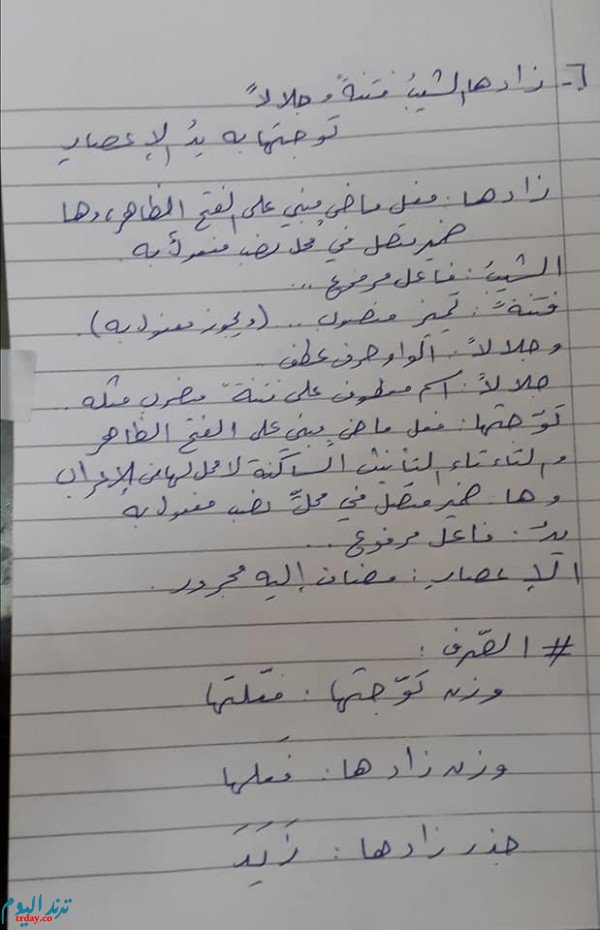 6- زادها الشيبُ فتنةً وجلالاً
توجتها به يدُ الإعصارِ
زادها: فعل ماضٍ مبني على الفتح الظاهر، وها
ضمير متصل في محل نصب مفعول به.
الشيبُ: فاعل مرفوع ...
فتنةً: تمييز منصوب ... (ويجوز مفعول به).
وجلالاً: الواو حرف عطف
جلالاً: اسم معطوف على فتنة منصوب مثله.
توّجتها: فعل ماضٍ مبني على الفتح الظاهر
والتاء تاء التأنيث الساكنة لا محل لها من الإعراب
وها: ضمير متصل في محلِّ نصب مفعول به
يدُ: فاعل مرفوع ...
الإعصارِ: مضاف إليه مجرور.
# الصّرف:
وزن توّجتها: فعّلتها
وزن زادها: فَعلها
جذر زادها: زَيَدَ
ترند اليوم
trday.co